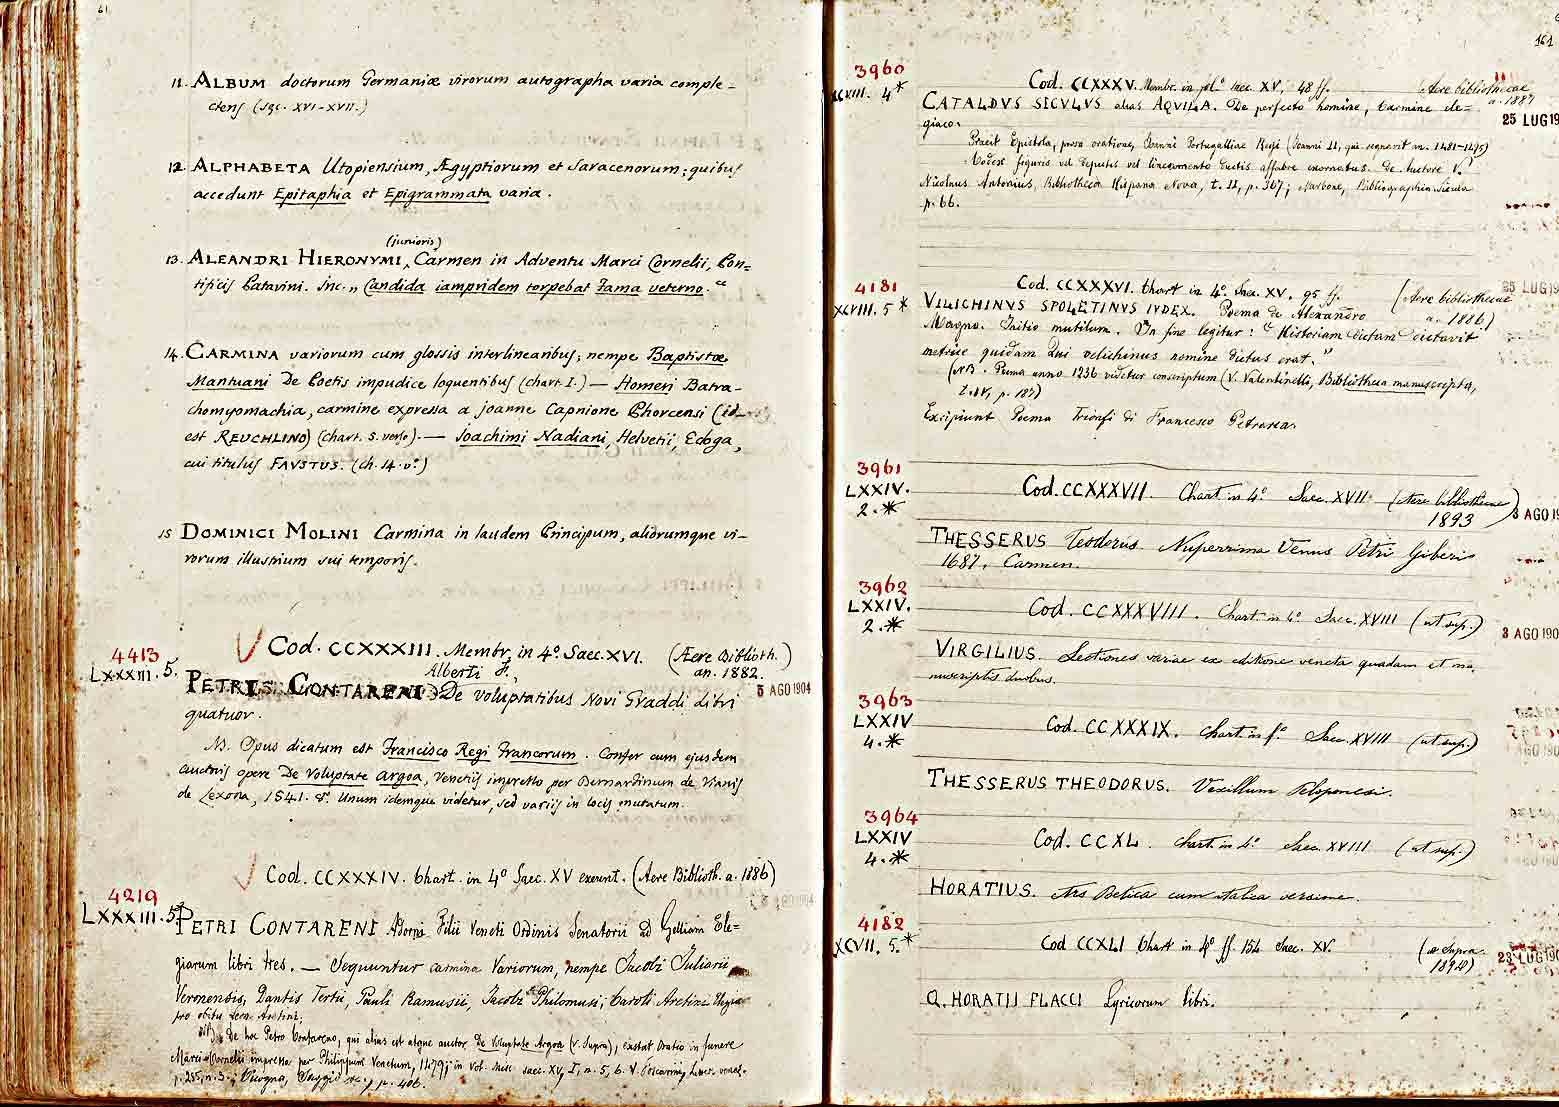 61
11. ALBUM doctorum Germaniæ virorum autographa varia comple-
ctens (sæc. XVI-XVII.)
12. ALPHABETA Utopiensium, Ægyptiorum et Saracenorum; quibus
accedunt Epitaphia et Epigrammata varia.
(junioris)
13. ALEANDRI HIERONYMI, Carmen in Adventu Marci Cornelii, Pon=
tificis Patavini. Inc. „ Candida iampridem torpebat Fama veterno. “
14. CARMINA variorum cum glossis interlinearibus; nempe Baptistæ
Mantuani De Poetis impudice loquentibus (chart. I.) — Homeri Batra-
chomyomachia, carmine expressa a Joanne Capnione Phorcensi (id
est REUCHLINO) (chart. 5. verso). — Joachimi Nadiani, Helvetii, Ecloga,
cui titulus FAVSTUS. (ch. 14. v.°)
15 DOMINICI MOLINI Carmina in laudem Principum, aliorumque vi-
rorum illustrium sui temporis.
4413
LXXXIII. 5.
Cod. CCXXXIII. Membr. in 4.° Saec. XVI. (Ære Biblioth.
an. 1882.)
Alberti F.,
PETRI CONTARENI De voluptatibus Novi Graddi libri
5 AGO 1904
quatuor.
N.B. Opus dicatum est Francisco Regi Francorum. Confer cum ejusdem
auctoris opere De Voluptate Argoa, Venetiis impresso per Bernardinum de Vianis
de Lexona, 1541. 8.° Unum idemque videtur, sed variis in locis mutatum.
4219
LXXXIII. 5*
Cod. CCXXXIV. Chart. in 4° Saec. XV exeunt. (Aere Biblioth. a. 1886)
PETRI CONTARENI Adorni Filii Veneti Ordinis Senatorii ad Gelliam Ele=
giarum libri tres. — Sequuntur carmina Variorum, nempe Jacobi Juliarii
Veronensis, Dantis Tertii, Pauli Ramusii, Jacobi Philomusi, Caroli Aretini
pro obitu Aretini.
NB. De hoc Petro Contareno, qui alias est atque auctor De Voluptate Argoa (v. supra), exstat Oratio in funere
Marci Cornelii impressa per Philippum Venetum, 1479; in vol. misc. saec. XV, I, n. 5, b. V. Foscarini,
p. 255, n. 3.; Saggio p. 406.
161
3960
XCVIII. 4*
Cod. CCXXXV. Membr. in fol.° saec. XV, 48 ff. (Aere bibliothecae
a. 1887
25 LUG 19
CATALDVS SICVLVS alias AQVILA. De perfecto homine, Carmine ele=
giaco.
Praeit Epistola, prosa oratione, Joanni Portugalliae Regi (Joanni II, qui regnavit an. 1481-1495)
Codex figuris vel depictis vel lineamento ductis affabre exornatus. De Auctore V.
Nicolaus Antonius, Bibliotheca Hispana Nova, t. II, p. 367; Narbone, Bibliographia Sicula
p. 66.
4181
XCVIII. 5*
Cod. CCXXXVI. Chart in 4.° Saec. XV. 95 ff. (Aere bibliothecae
a. 1886)
25 LUG 19
VILICHINVS SPOLETINVS IVDEX. Poema de Alexandro
Magno. Initio mutilum. In fine legitur: “ Historiam dictam dictavit
metrice quidam Qui velichinus nomine dictus erat. ”
(NB. Poema anno 1236 videtur conscriptum (V. Valentinelli, Bibliotheca manuscripta,
t. IV, p. 187)
Excipiunt Poema Trionfi di Francesco Petrarca.
3961
LXXIV.
2.*
Cod. CCXXXVII. Chart. in 4.° Saec. XVII (Aere bibliothecae
1893)
3 AGO 19
THESSERUS Teodorus. Nuperrima Venus Petri Giberis
1687. Carmen.
3962
LXXIV.
2.*
Cod. CCXXXVIII. Chart. in 4.° Saec. XVIII (ut sup.)
3 AGO 190
VIRGILIUS. Lectiones variae ex editione veneta quadam et ma
nuscriptis duobus.
3963
LXXIV
4.*
Cod. CCXXXIX. Chart. in f.° Saec. XVIII (ut sup.)
THESSERUS THEODORUS. Vexillum Peloponesi.
3964
LXXIV
4.*
Cod. CCXL. Chart. in 4.° Saec. XVIII (ut sup.)
HORATIUS. Ars Poetica cum italica versione.
4182
XCVII. 5.*
Cod CCXLI Chart in 4.° ff. 154 Saec. XV. (ut supra
1898)
23 LUG 190
Q. HORATII FLACCI Lyricorum libri.